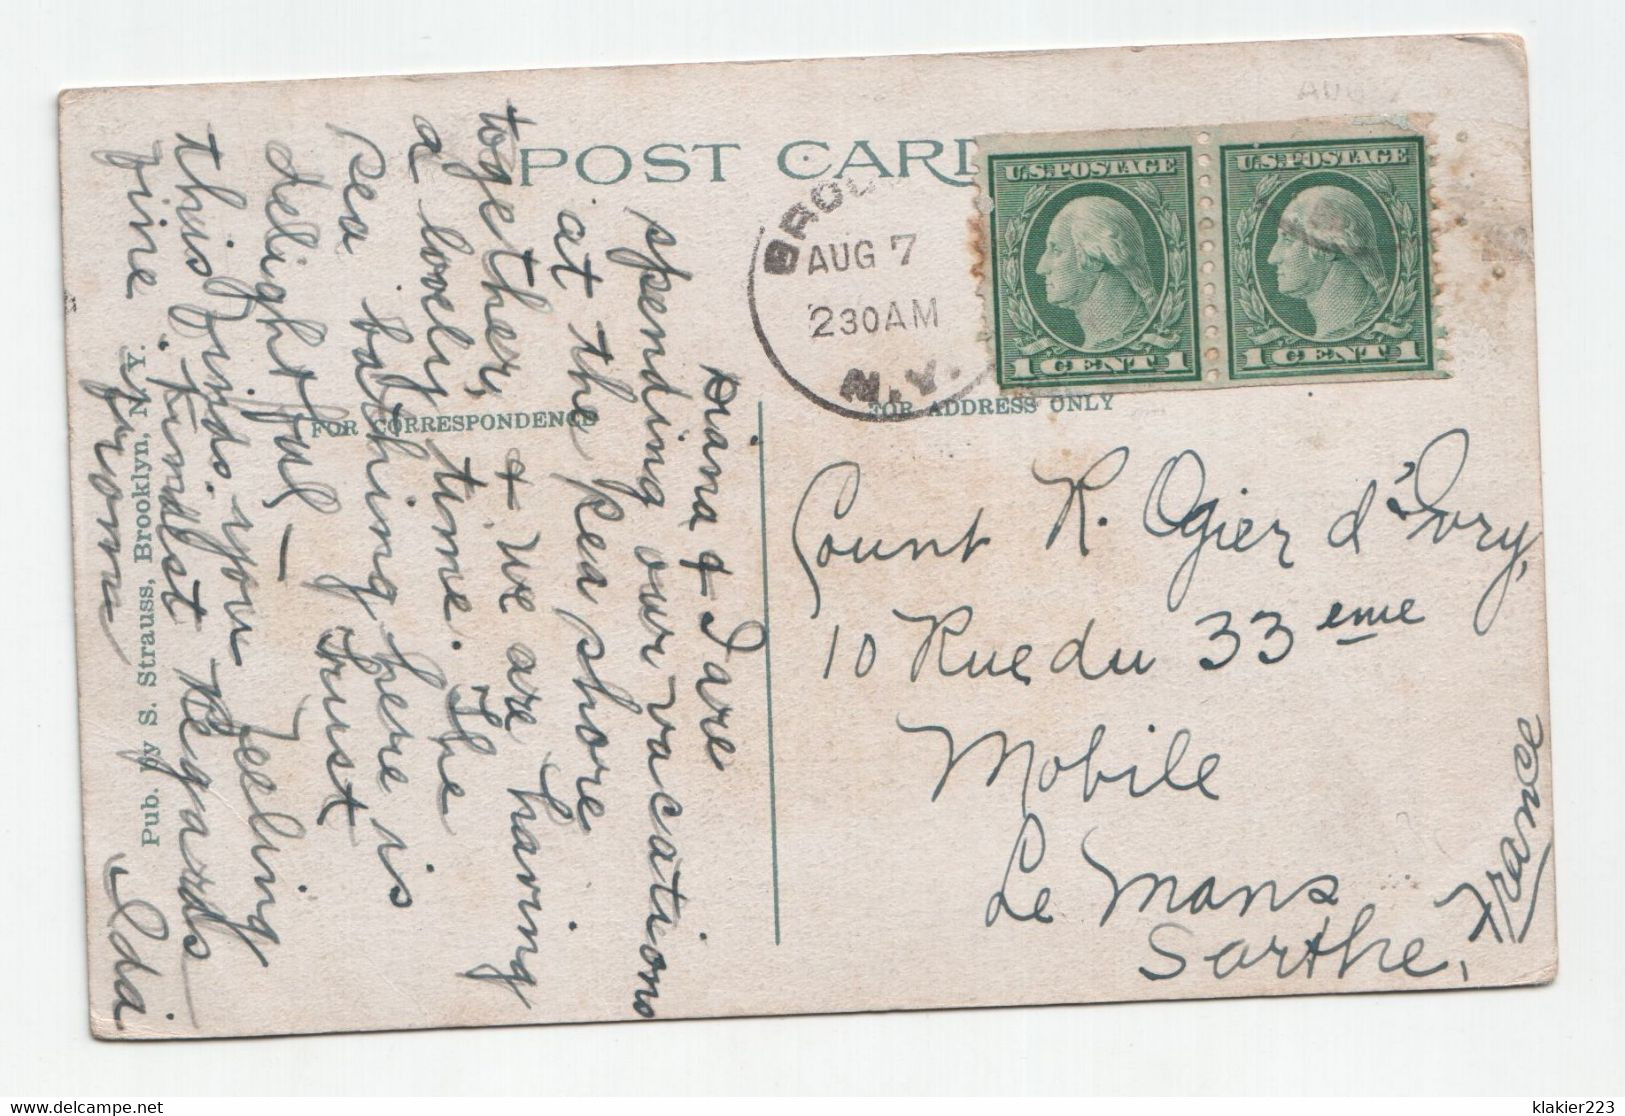 POST CARD
AUG 7
2 30 AM
N.Y.
U.S. POSTAGE
1 CENT 1
U.S. POSTAGE
1 CENT 1
FOR CORRESPONDENCE
FOR ADDRESS ONLY
Diana & I are
spending our vacations
at the sea shore
together, & we are having
a lovely time. The
sea bathing here is
delightful – Trust
this finds you feeling
fine. Kindest Regards
from Ida
Pub. by S. Strauss, Brooklyn, N. Y.
Count R. Ogier d'Ivry,
10 Rue du 33 eme
Mobile
Le Mans
Sarthe,
France
klakier223